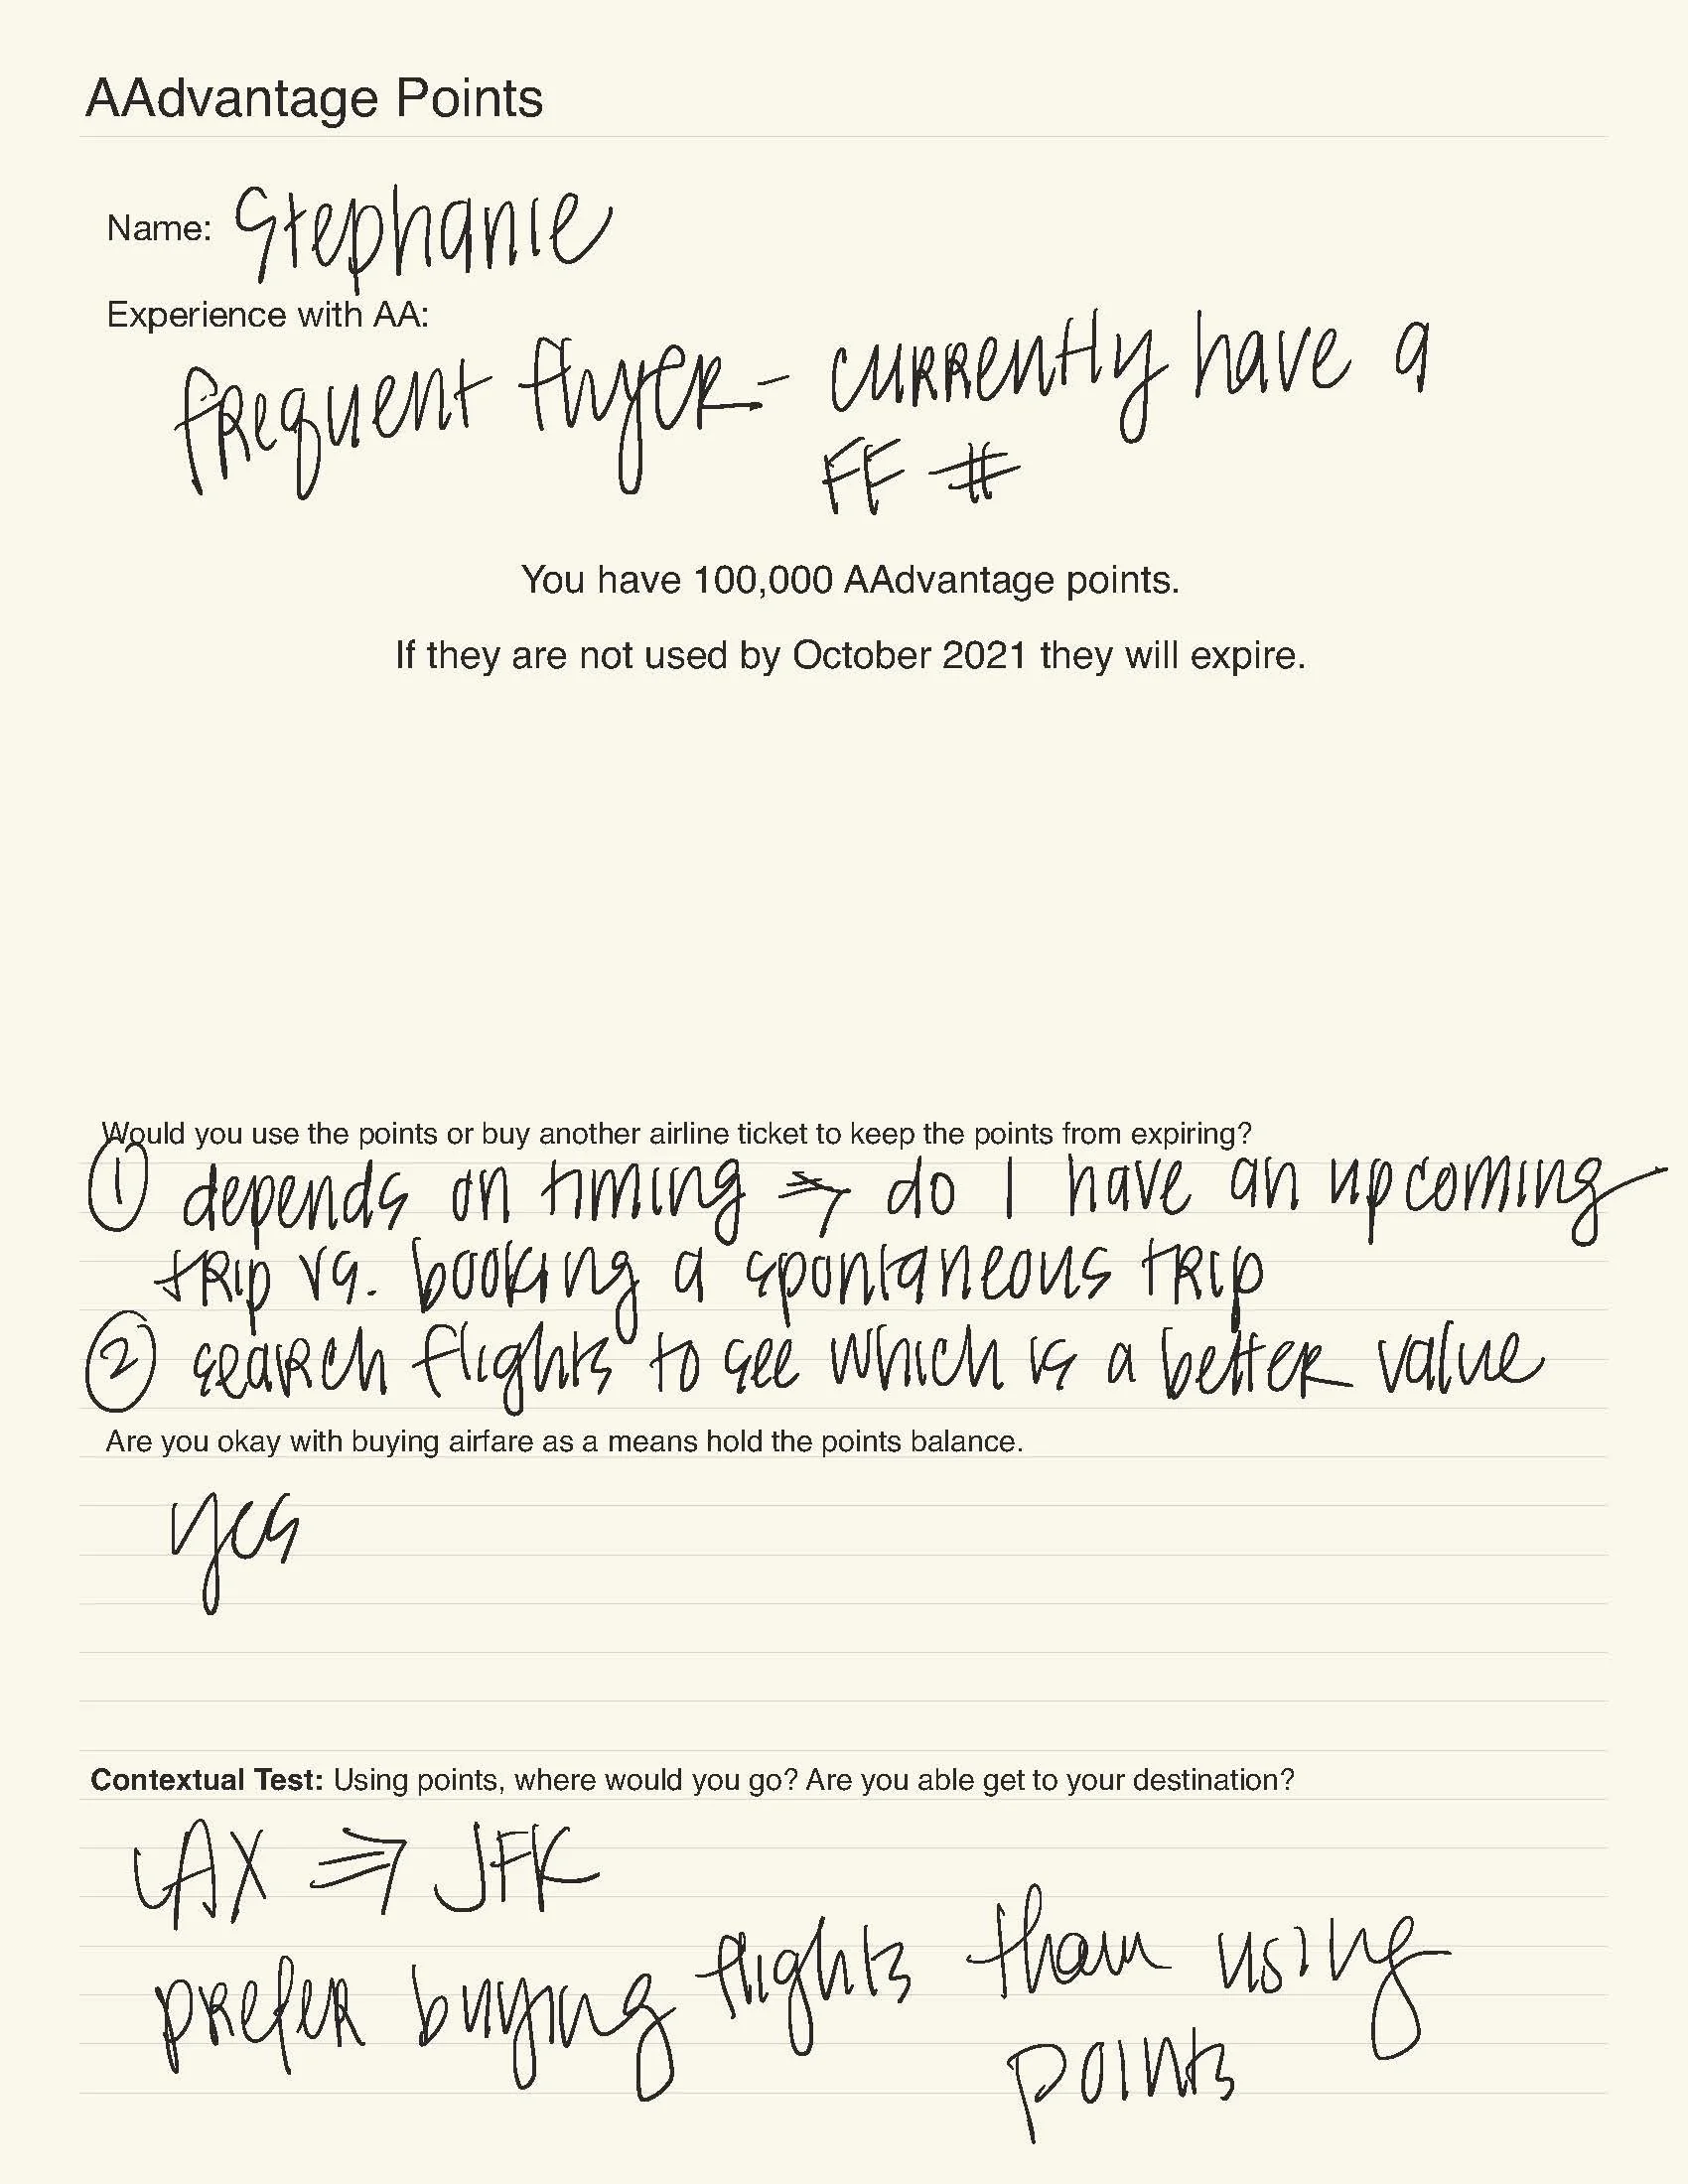 AAdvantage Points
Name: Stephanie
Experience with AA:
frequent flyer - currently have a
FF #
You have 100,000 AAdvantage points.
If they are not used by October 2021 they will expire.
Would you use the points or buy another airline ticket to keep the points from expiring?
① depends on timing → do I have an upcoming
trip vs. booking a spontaneous trip
② search flights to see which is a better value
Are you okay with buying airfare as a means hold the points balance.
yes
Contextual Test: Using points, where would you go? Are you able get to your destination?
LAX ⇒ JFK
prefer buying flights than using
points